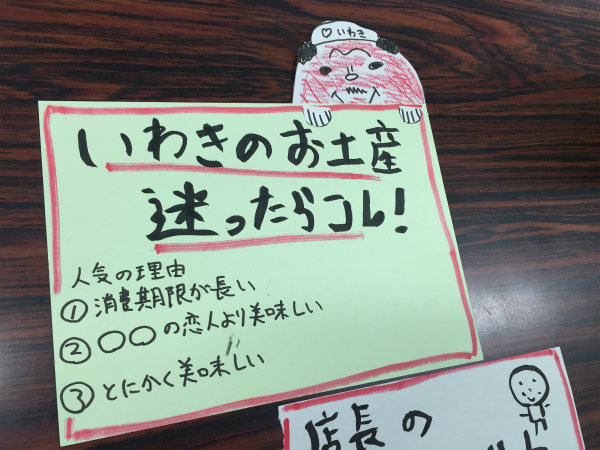 ♡いわき
いわきのお土産
迷ったらコレ!
人気の理由
① 消費期限が長い
② 〇〇の恋人より美味しい
③ とにかく美味しい
店長の